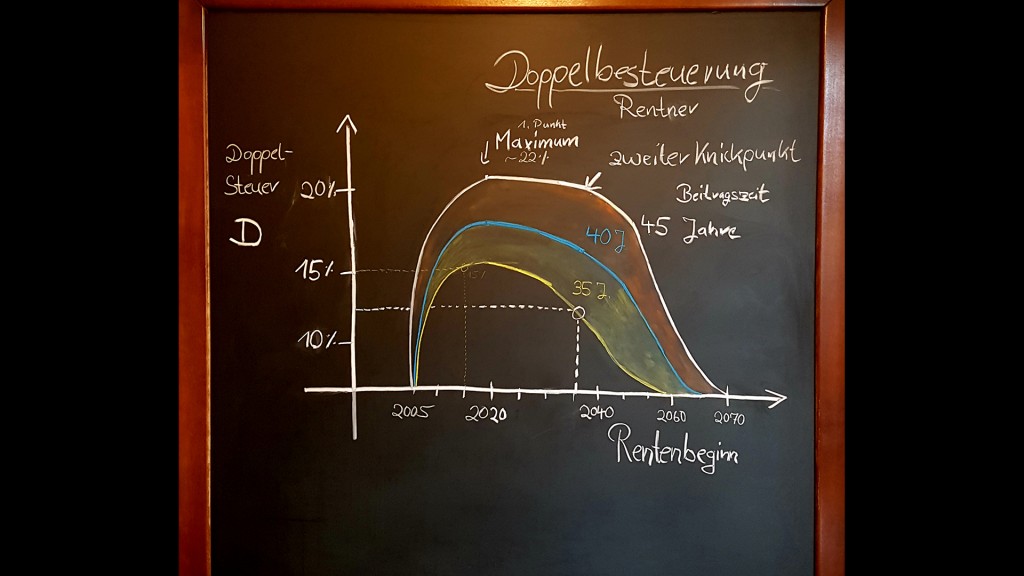 Doppelbesteuerung
Rentner
1. Punkt
Maximum
~22%
zweiter Knickpunkt
Doppel-
Steuer
D
Beitragszeit
45 Jahre
40 J
35 J.
20%
15%
15%
10%
2005
2020
2040
2060
2070
Rentenbeginn